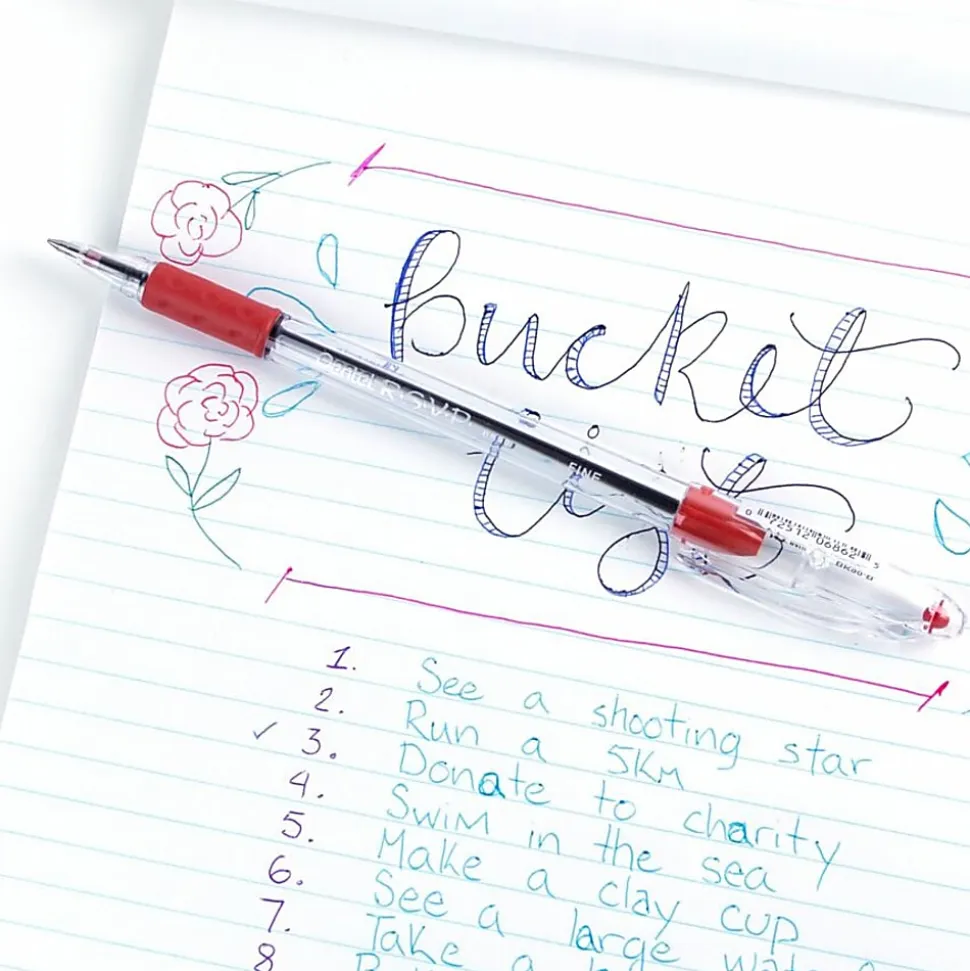 bucket
list
Pentel R.S.V.P.
FINE
0 72512 06862 5
1. See a shooting star
2. Run a 5Km
✓ 3. Donate to charity
4. Swim in the sea
5. Make a clay cup
6. See a large
7. Take a
8